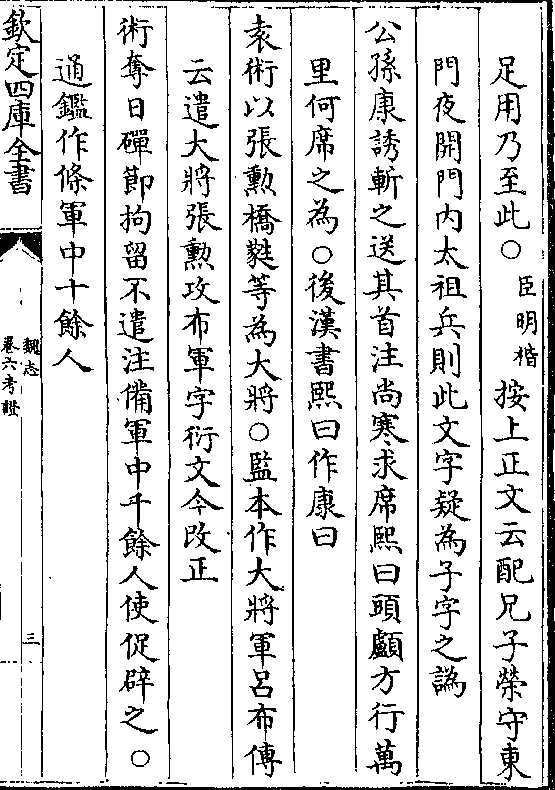 足用乃至此○臣明楷按上正文云配兄子榮守東
門夜開門內太祖兵則此文字疑為子字之譌
公孫康誘斬之送其首注尚寒求席熙曰頭顱方行萬
里何席之為○後漢書熙曰作康曰
袁術以張勲橋蕤等為大將○監本作大將軍呂布傳
云遣大將張勲攻布軍字衍文今改正
術奪日磾節拘留不遣注備軍中千餘人使促辟之○
通鑑作條軍中十餘人
欽定四庫全書
魏志
卷六考證
三